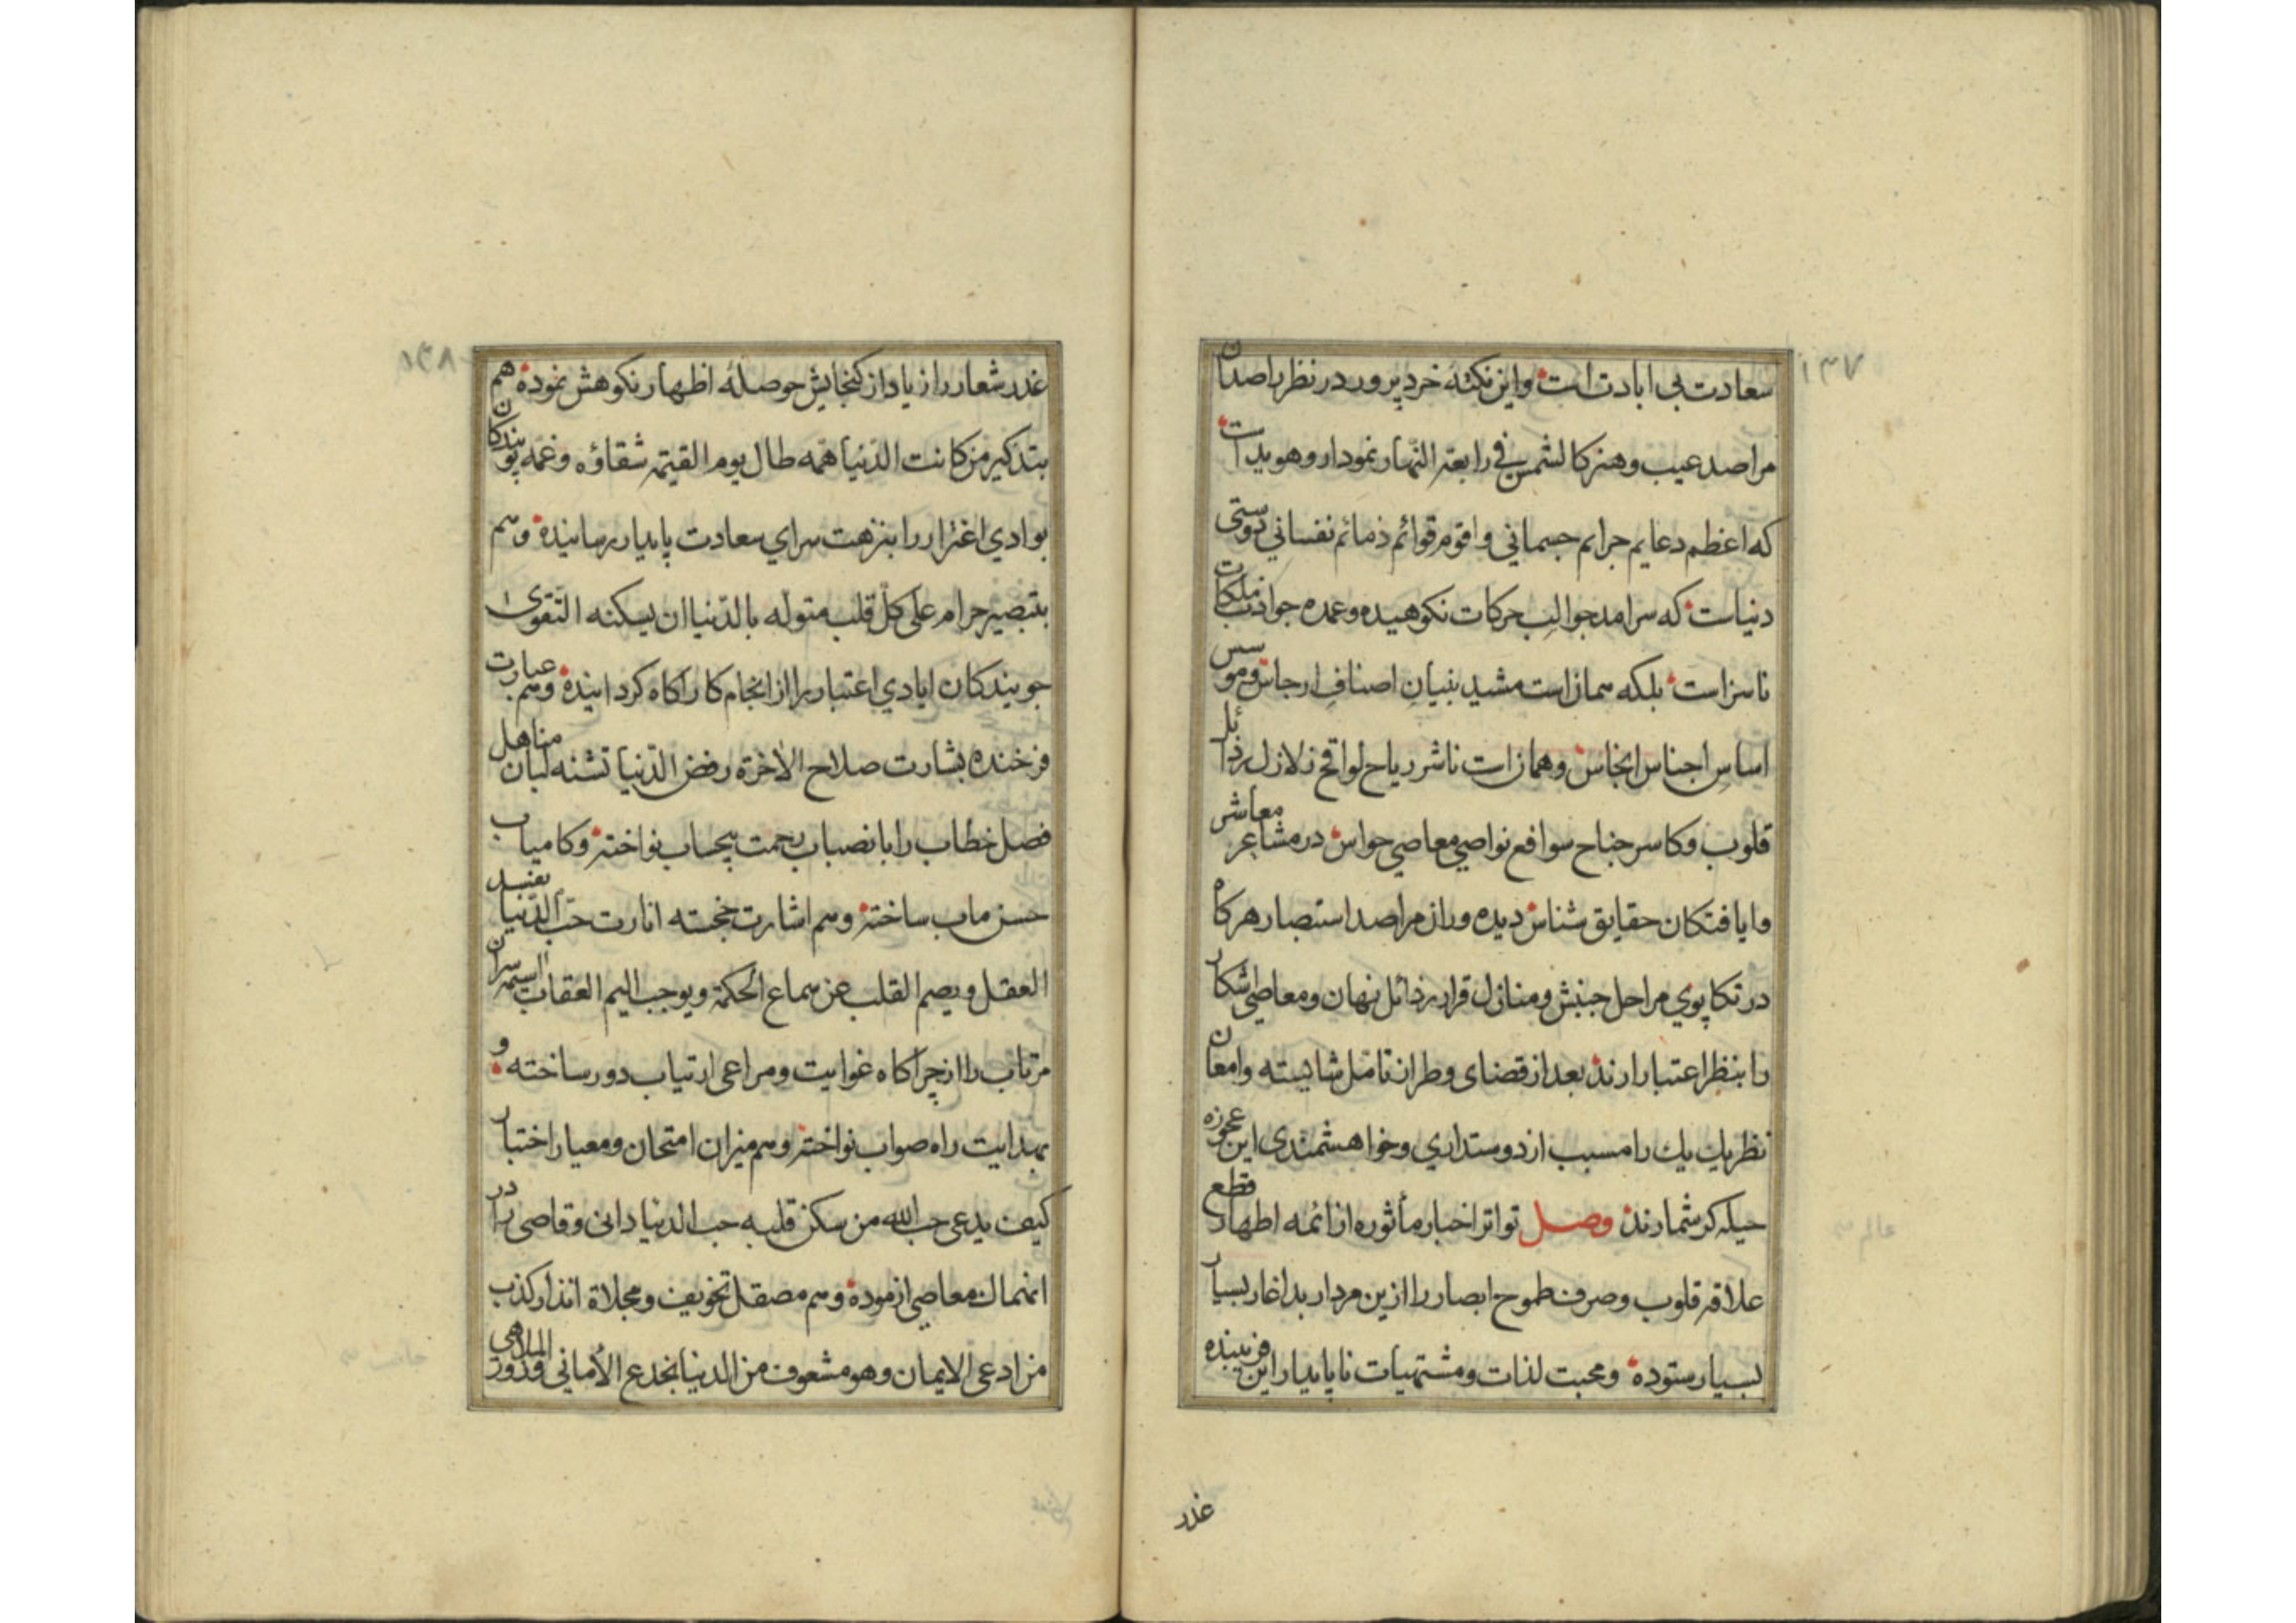 ١٣٧
سعادت بی ابادت است واین نکته خرد پرور در نظر راصدان
مراصد عیب وهنر کالشمس في رابعة النهار نمودار وهویداست
که اعظم دعایم جرایم جسمانی واقوم قوائم ذمائم نفسانی دوستی
دنیاست که سرامد جوالب حرکات نکوهیده وعمده جواذب ملکات
ناسزاست بلکه همان است مشید بنیانِ اصنافِ ارجاس وموسس
اساسِ اجناس انجاس وهمان است ناشر ریاح لواقح زلازل رذائل
قلوب وکاسر جناح سوافع نواصی معاصی حواس در مشاعر معاشر
وایافتکان حقایق شناس دیده وران مراصد استبصار هرکاه
در تکاپوي مراحل جنبش ومنازل قرار رذائل نهان ومعاصی اشکار
را بنظر اعتبار ارند بعد از قضای وطران تامّل شایسته وامعان
نظر یك یك را مسبب از دوستداري وخواهشمندی این عجوزه
حیله کر شمارند وصل تواتر اخبار مأثوره از ائمه اطهار قطع
علاقه قلوب وصرف طموح ابصار را ازین مردار بداغار بسیار
بسیار ستوده ومحبت لذات ومشتهیات ناپایدار این فریبنده
غدر
١٣٨
غدر شعار را زیاد از کنجایش حوصله اظهار نکوهش نموده هم
بتذکیر من کانت الدّنیا همّه طال یوم القیٰمه شقاؤه وغمّه پویندکان
بوادي اغترار را بنزهت سراي سعادت پایدار رسانیده وهم
بتبصیر حرام علی کلّ قلب متولّه بالدّنیا ان یسکنه التّقوی
جویندکان ایادي اعتبار را از انجام کار اکاه کردانیده وهم عبارت
فرخنده بشارت صلاح الاخرة رفض الدّنیا تشنه لبان مناهل
فصل خطاب را بانصباب رحمت بیحساب نواخته وکامیاب
حسن ماب ساخته وهم اشارت خجسته انارت حبّ الدّنیا یفسد
العقل ویصم القلب عن سماع الحکمة ویوجب الیم العقاب سران
مرتاب را از چراکاه غوایت ومراعی ارتیاب دور ساخته و
بهدایت راه صواب نواخته وهم میزان امتحان ومعیار اختبار
کیف یدعی حب الله من سکن قلبه حب الدنیا دانی وقاصی را در
انهماك معاصی ازموده وهم مصقل تخویف ومجلاة انذار کذب
من ادعی الایمان وهو مشعوف من الدنیا بخدع الأماني وزور الملاهي